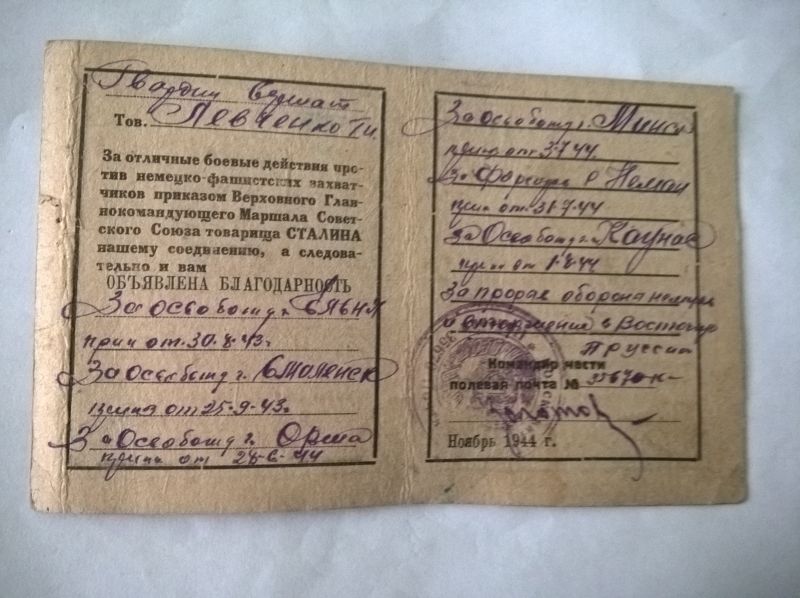 Гвардии Сержант
Тов. Левченко
За отличные боевые действия про-
тив немецко-фашистских захват-
чиков приказом Верховного Глав-
нокомандующего Маршала Совет-
ского Союза товарища СТАЛИНА
нашему соединению, а следова-
тельно и вам
ОБЪЯВЛЕНА БЛАГОДАРНОСТЬ
За освобожд г. Ельня
прик от 30.8.43г
За Освобожд г. Смоленск
от 25-9-43г
За Освобожд г. Орша
от 28-6-44
За Освобожд г. Минск
прик от 3.7.44
За форсир р Неман
прик от 31-7-44
За Освобожд г. Каунас
прик от 1-8-44
За прорыв оборона немцев
и вторжения в Восточную
Пруссию
Командир части
полевая почта №
Ноябрь 1944 г.